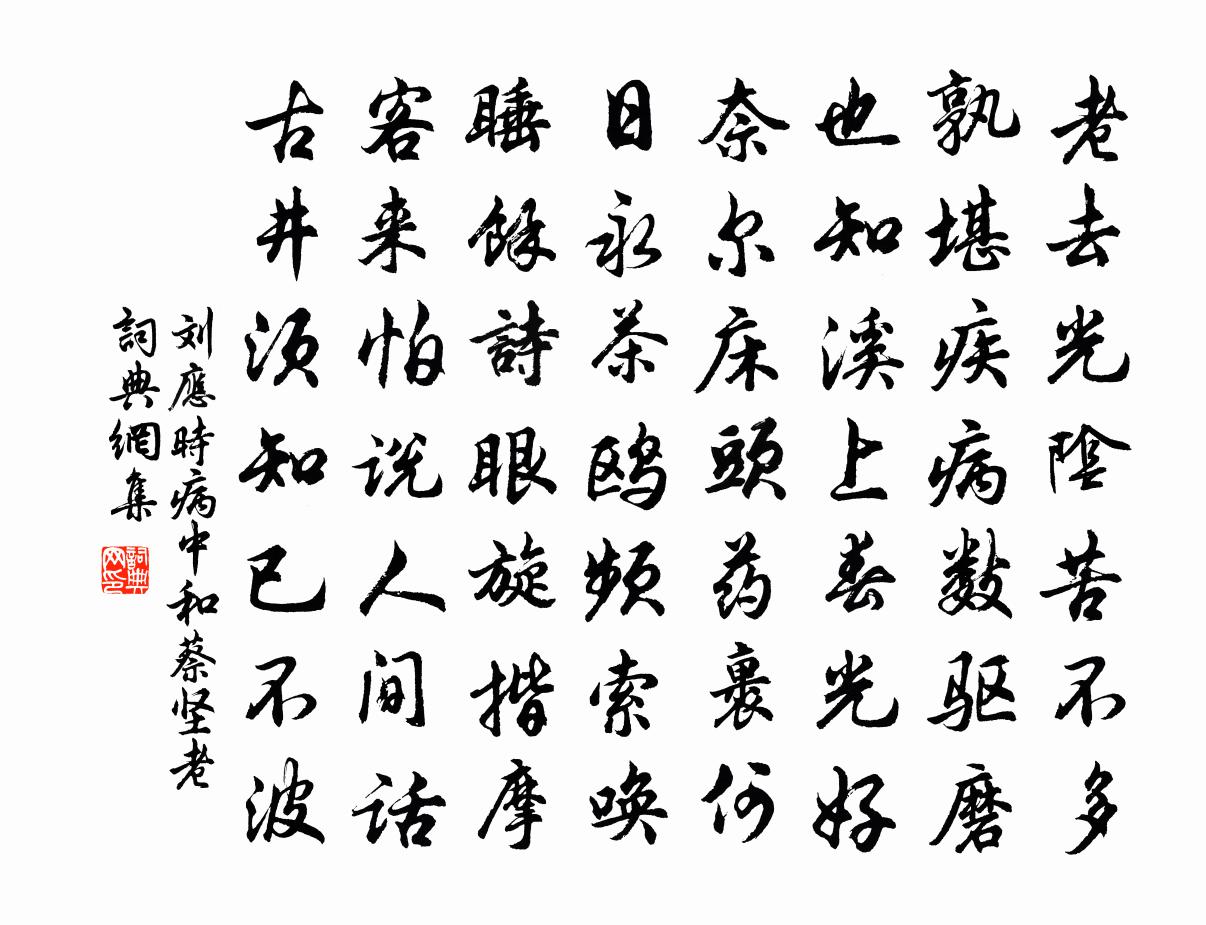 老去光陰苦不多
孰堪疾病数驱磨
也知溪上春光好
奈尔床頭药裹何
日永茶鸥频索唤
睡餘詩眼旋揩摩
客来怕说人间话
古井须知已不波
刘應時病中和蔡坚老
詞典網集
詞典网印